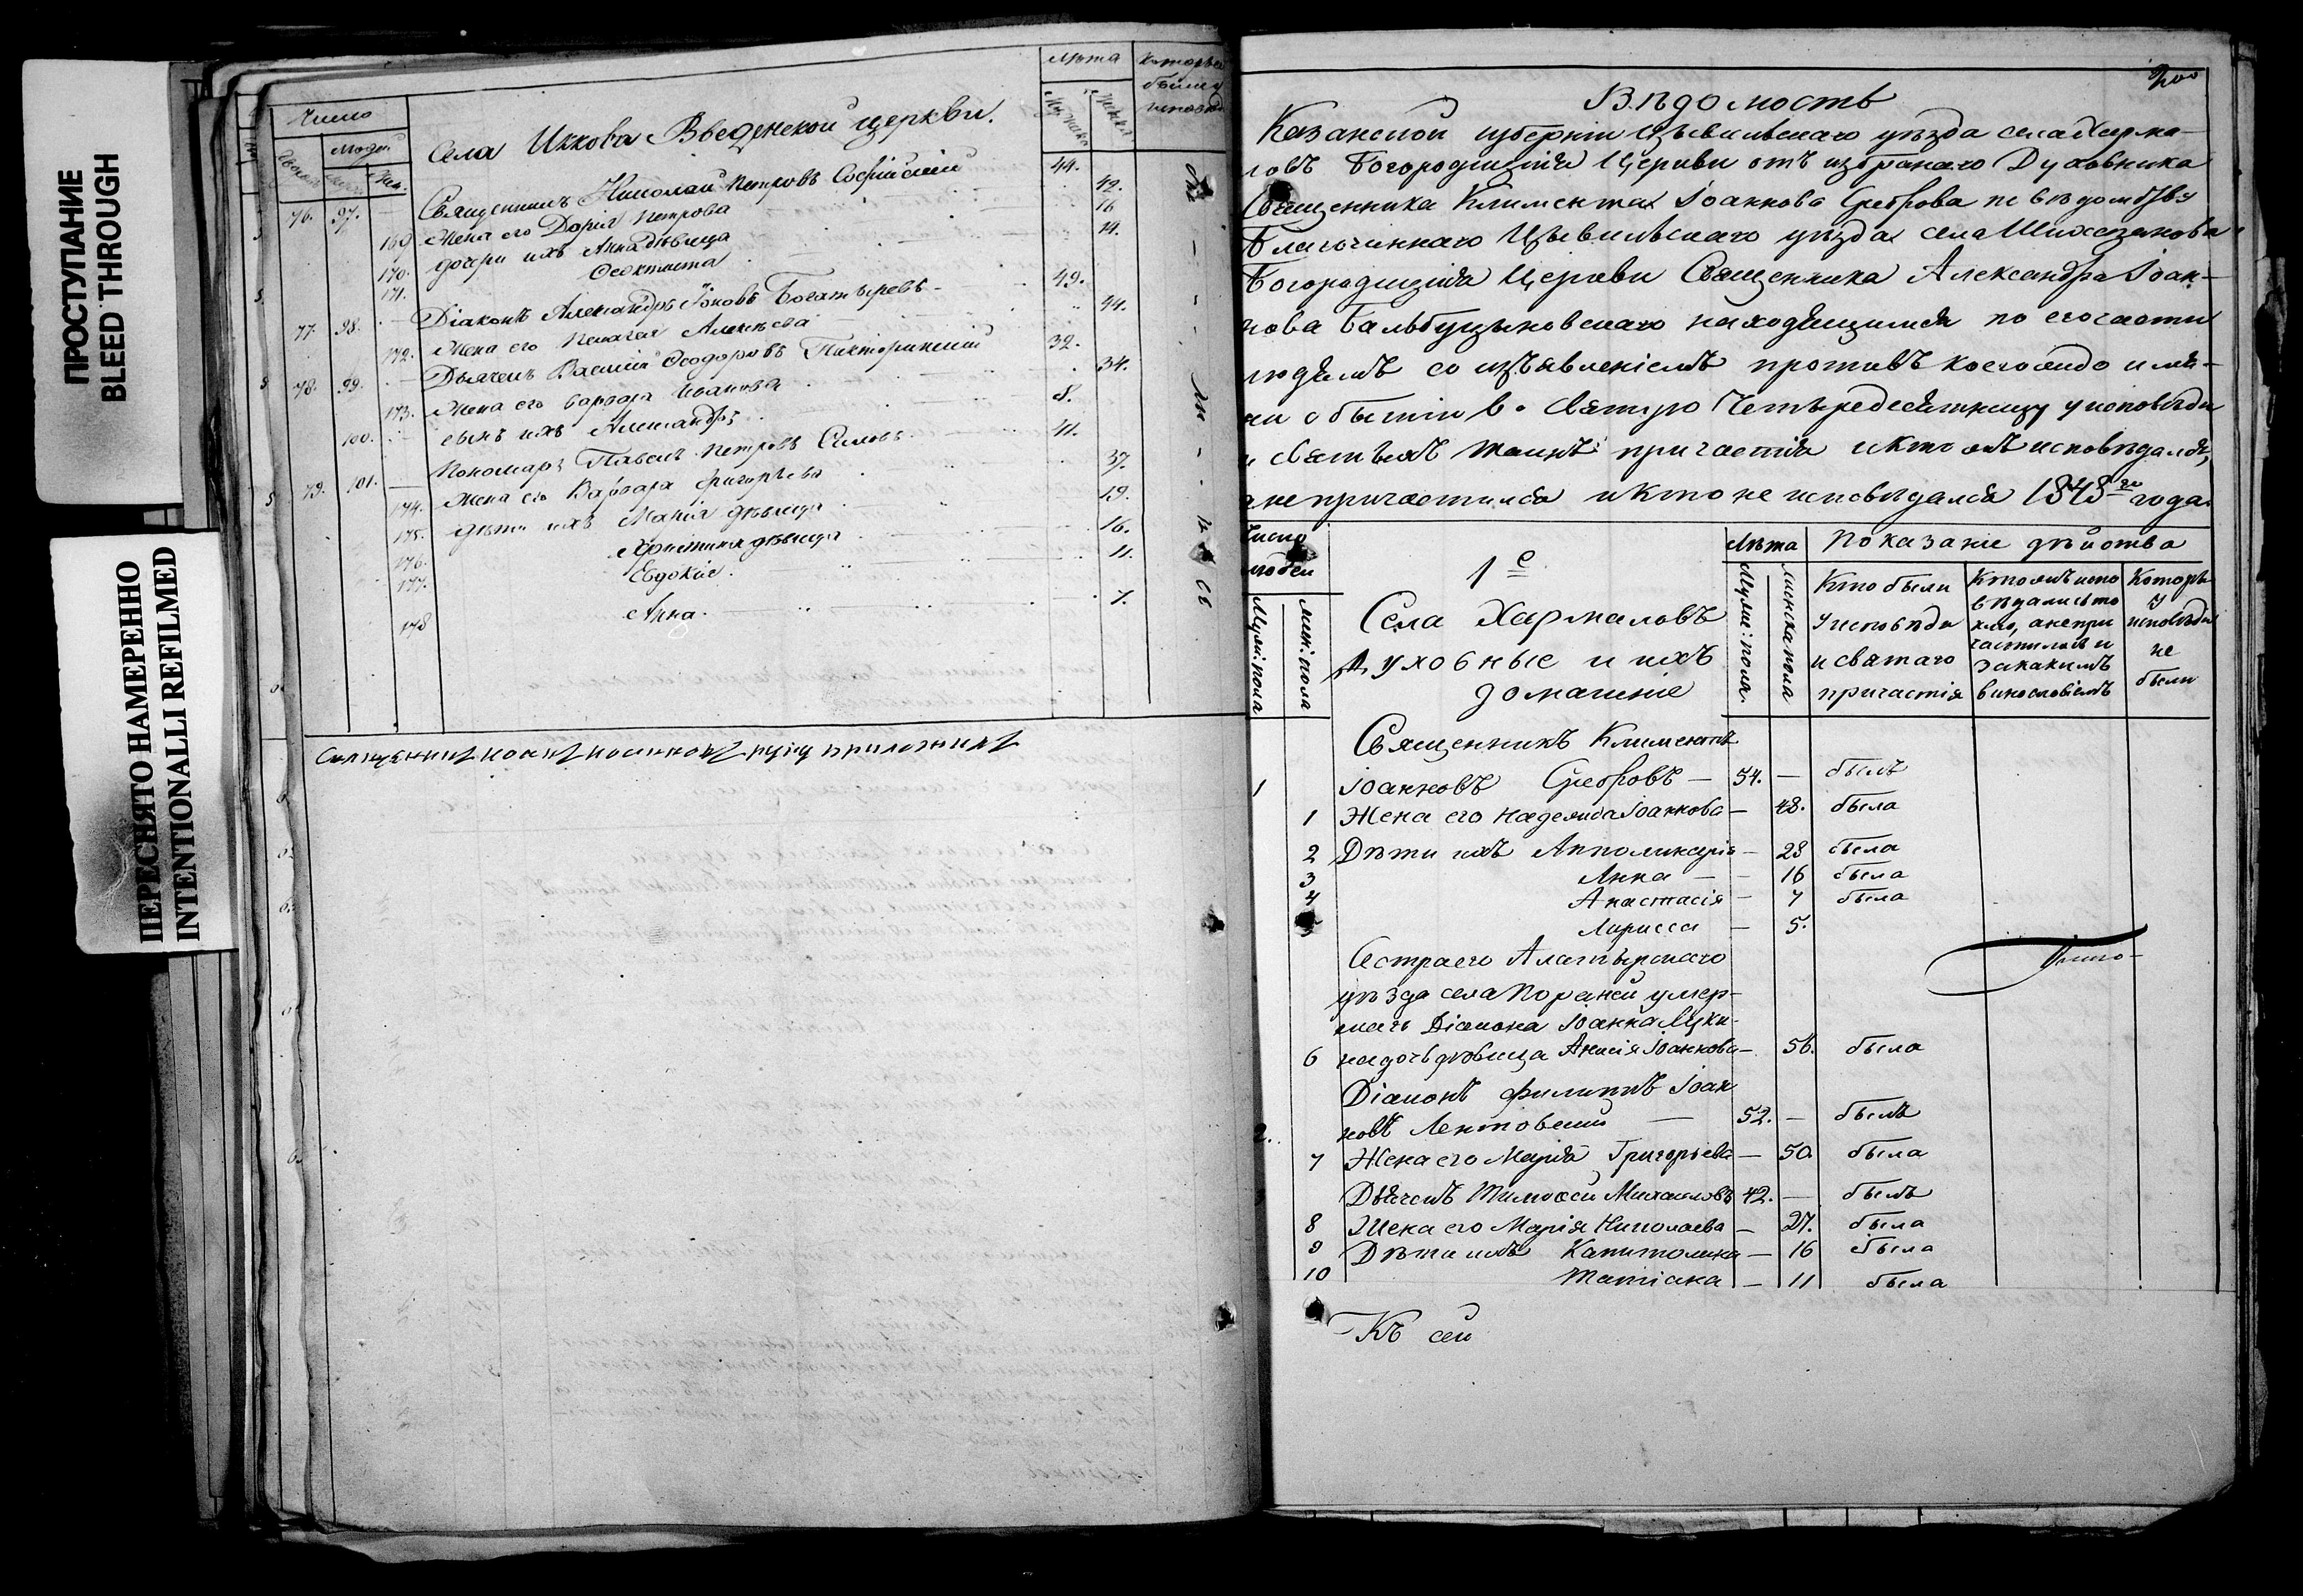 ПРОСТУПАНИЕ
BLEED THROUGH
ПЕРЕСНЯТО НАМЕРЕННО
INTENTIONALLI REFILMED
Число
Людей
Лѣта
Села Иккова Введенской церкви.
76. 97. — Священникъ Николай Петровъ Софійскій 44.
169 Жена его Дарія Петрова 42.
170. дочери ихъ Анна дѣвица 16
171. Феоктиста 11.
77. 98. — Діаконъ Александръ Іоновъ Богатыревъ 49.
172. Жена его Пелагея Алексѣева 44.
78. 99. — Дьячекъ Василій Феодоровъ 32.
173. Жена его Варвара Иванова 34.
100. сынъ ихъ Александръ 8.
79. 101. — Пономарь Павелъ Петровъ 41.
174. Жена его Варвара Григорьева 37.
175. дѣти ихъ Марія дѣвица 19.
176. Христина дѣвица 16.
177. Евдокія 11.
178 Анна
200
Вѣдомость
Казанской губерніи Цывильскаго уѣзда села Харма-
ловъ Богородицкія Церкви отъ избраннаго Духовника
Священника Климента Іоаннова Среброва по вѣдомству
Благочиннаго Цывильскаго уѣзда села Шихазанова
Богородицкія Церкви Священника Александра Іоан-
нова находящимся по его части
людямъ со изъявленіемъ противъ коегождо имя-
ни о бытіи в Святую Четыредесятницу у исповѣди
и Святыхъ Таинъ причастія и кто исповѣдался,
а не причастился и кто не исповѣдался 1848го года.
Число людей
Лѣта
Показаніе дѣйства
Муж: пола
Жен: пола
1е
Села Хармаловъ
Духовные и ихъ
домашніе
Муже: пола.
Женска пола
Кто были
у исповѣди
и святаго
причастія
Которы
у
исповѣди
не
были
Священникъ Климентъ
1 Іоанновъ Сребровъ — 54. — былъ
1 Жена его Надежда Іоаннова — 48. была
2 Дѣти ихъ Апполинарія — 28 была
3 Анна — 16 была
4 Анастасія — 7 была
5 Ларисса — 5.
Сестра его Алатырскаго
уѣзда села Порацкой умер-
шаго Діакона Іоанна
6 дочь дѣвица Анисія Іоаннова — 56. была
Діаконъ Филиппъ Іоан
2. новъ Лентовскій — 52. — былъ
7 Жена его Марія Григорьева — 50. была
Дьячекъ Тимофей Михаиловъ 42. — былъ
8 Жена его Марія Николаева — 27. была
9 Дѣти ихъ Капитолина — 16 была
10 Татіана — 11 была
Къ сей